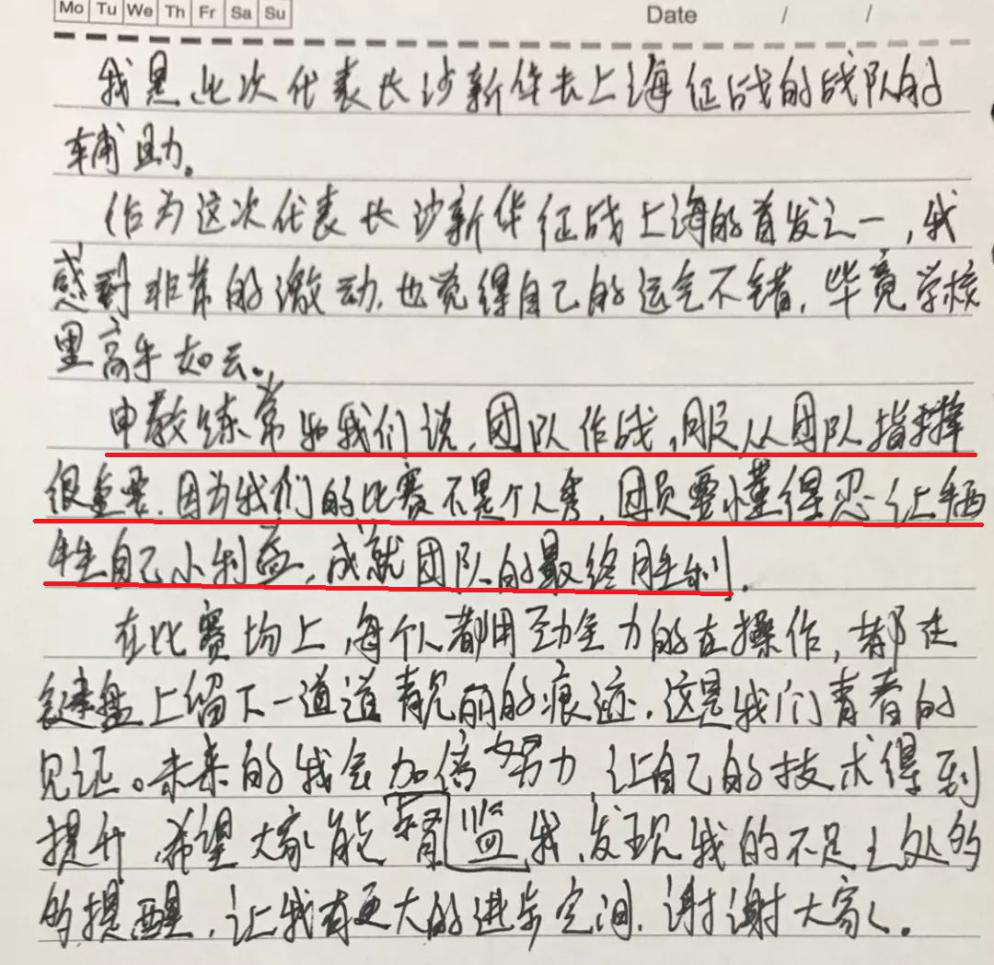 Mo Tu We Th Fr Sa Su Date / /
我是此次代表长沙新华去上海征战的战队的
辅助。
作为这次代表长沙新华征战上海的首发之一,我
感到非常的激动,也觉得自己的运气不错,毕竟学校
里高手如云。
申教练常和我们说,团队作战,服从团队指挥
很重要,因为我们的比赛不是个人秀,团员要懂得忍让牺
牲自己小利益,成就团队的最终胜利.
在比赛场上,每个人都用劲全力的在操作,都在
键盘上留下一道道靓丽的痕迹,这是我们青春的
见证。未来的我会加倍努力 让自己的技术得到
提升,希望大家能督监我,发现我的不足之处的
的提醒,让我有更大的进步空间,谢谢大家.